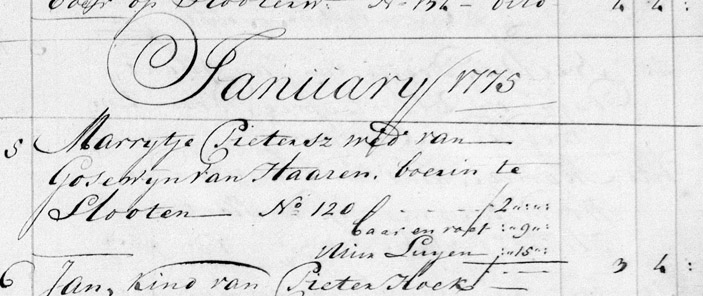 boer op Slooterw: No 154 - 4 4 :
January 1775
5 Marrytje Pietersz wed van
Gosewyn van Haaren, boerin te
Slooten No 120 ƒ 2 :":
baar en roef : " 9 :
Luyen : " 15 :
3 4 :
6 Jan, Kind van Pieter Hoek